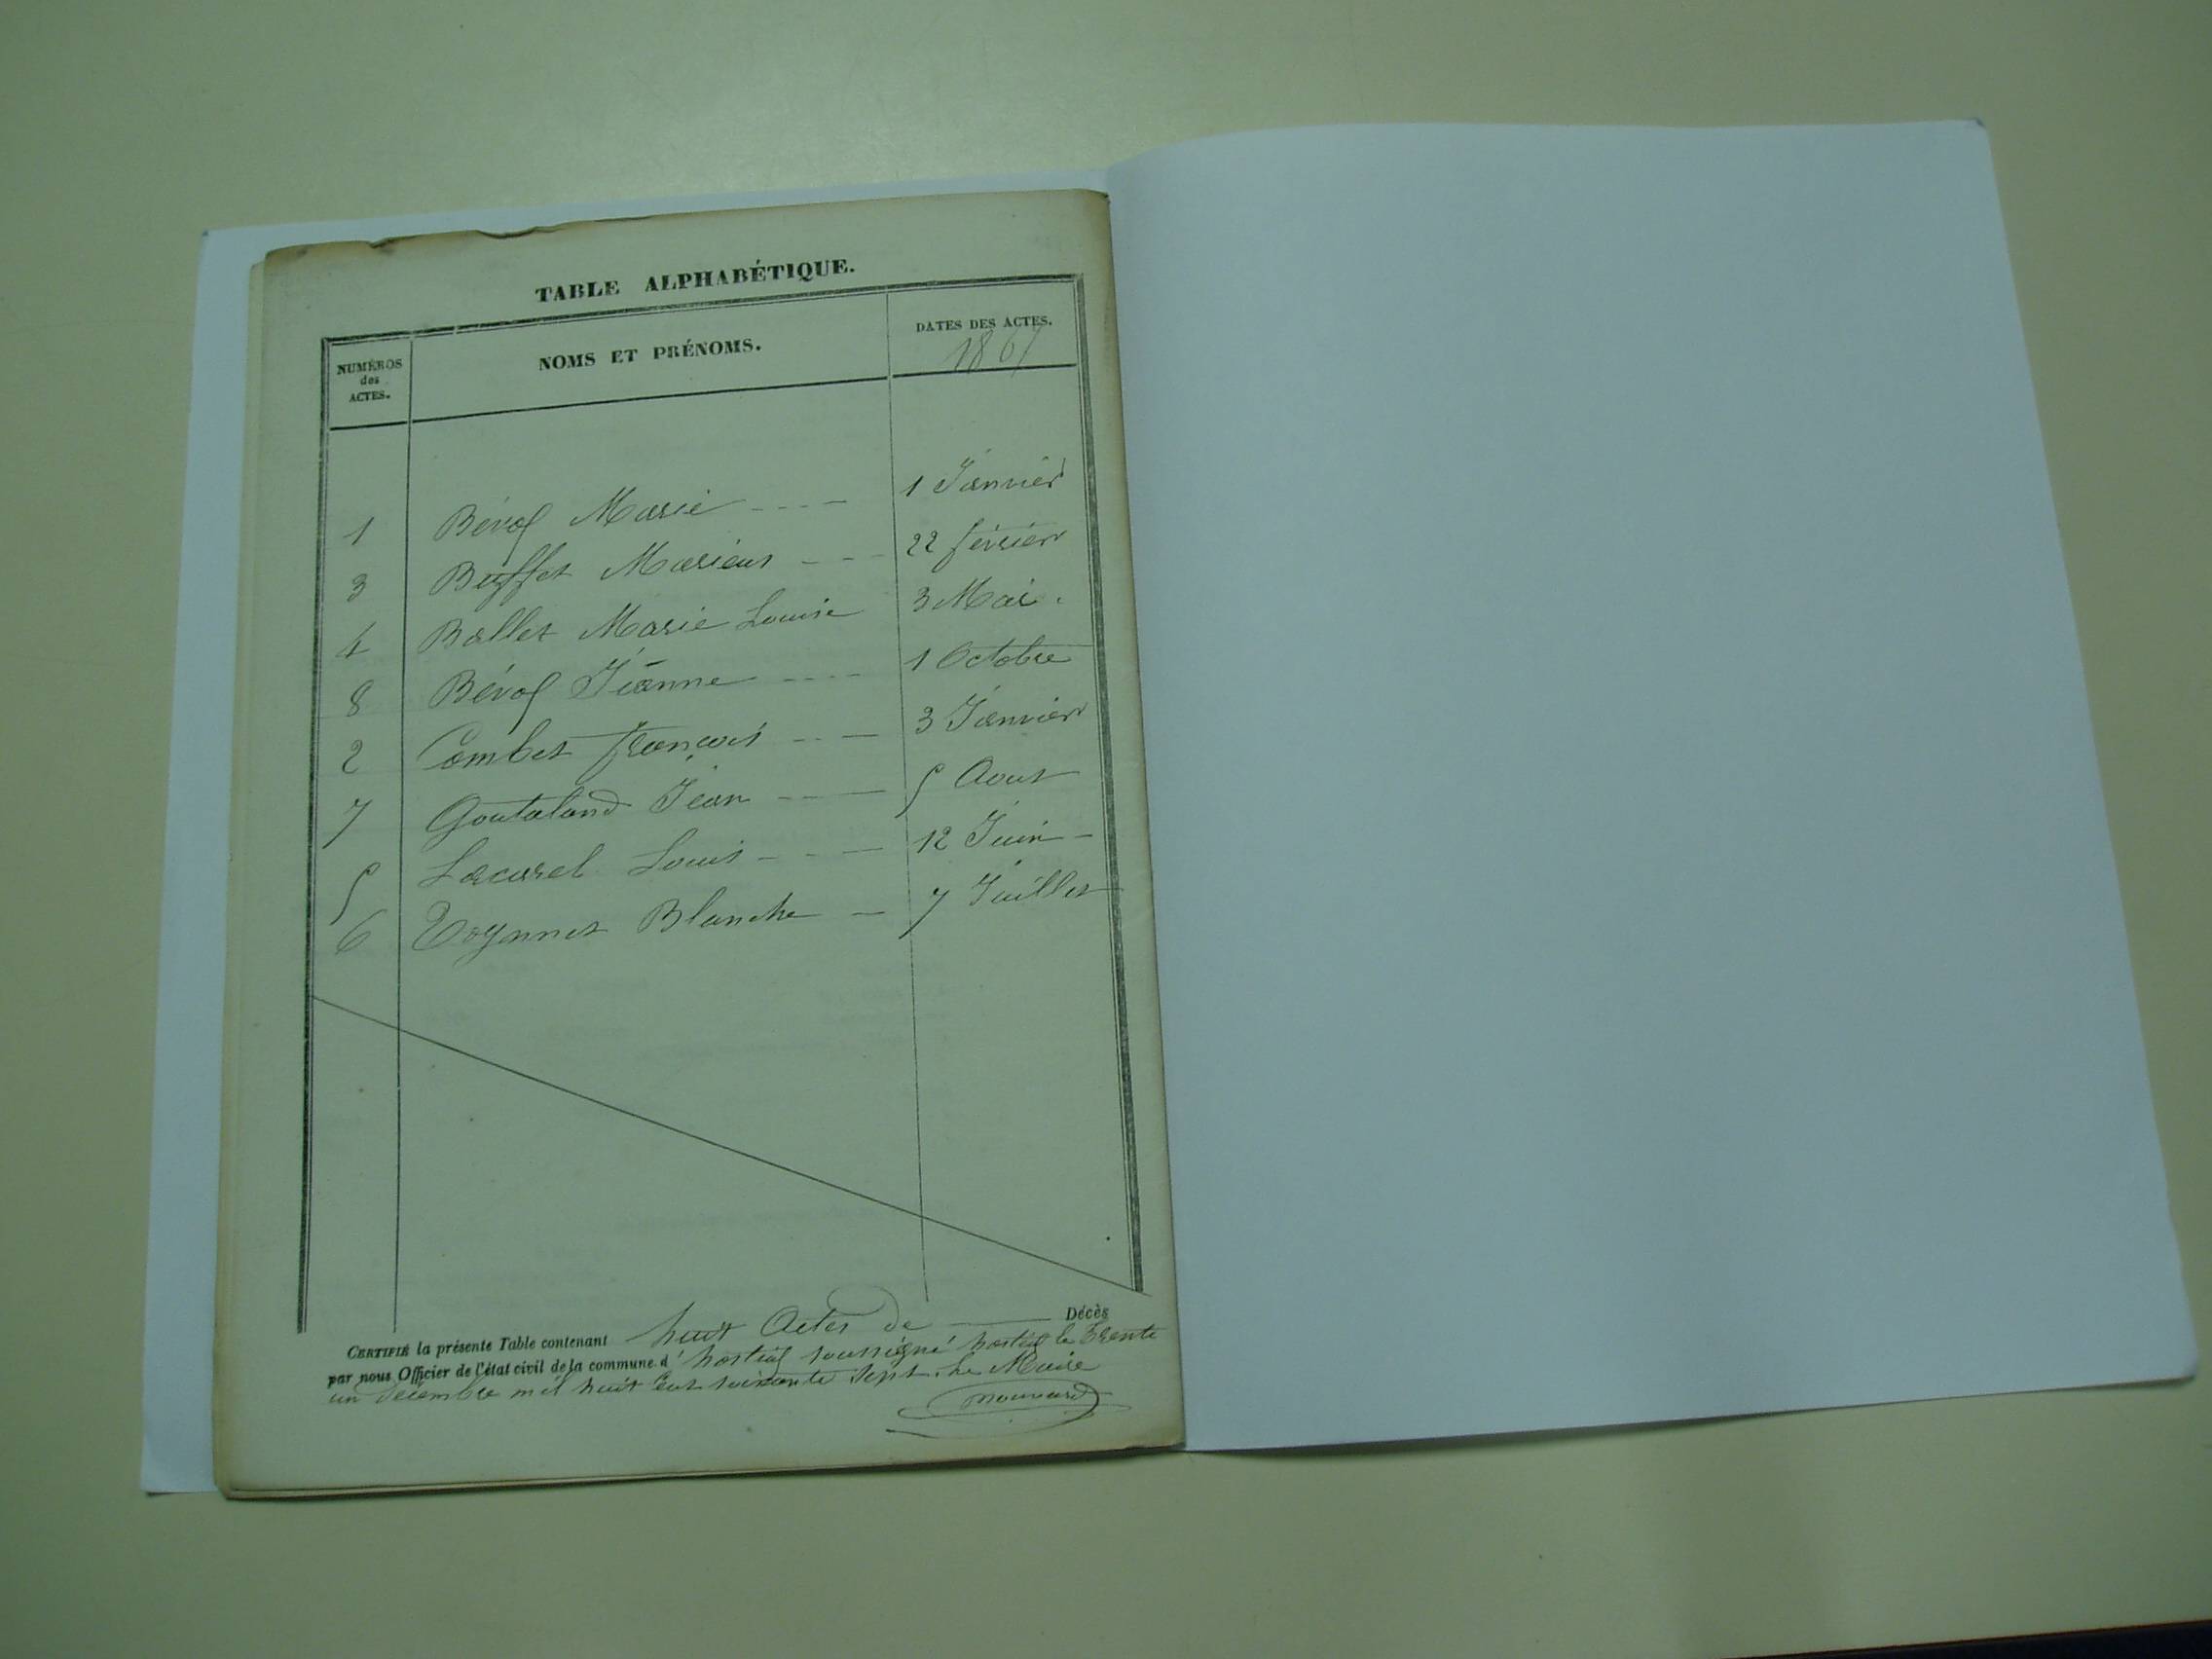 TABLE ALPHABÉTIQUE.
NUMÉROS des ACTES.
NOMS ET PRÉNOMS.
DATES DES ACTES.
1867
1 Bérof Marie 1 Janvier
3 Buffet Marieus 22 février
4 Ballet Marie Louise 3 Mai.
8 Bérof Jéanne 1 Octobre
2 Combet françois 3 Janvier
7 Goutaland Jean 5 Aout
5 Lacarel Louis 12 Juin
6 Blanche 7 Juillet
CERTIFIÉ la présente Table contenant huit Actes de Décès
par nous Officier de l'état civil de la commune d' soussigné le Trente
un Décembre mil huit Cent soixante Sept. Le Maire